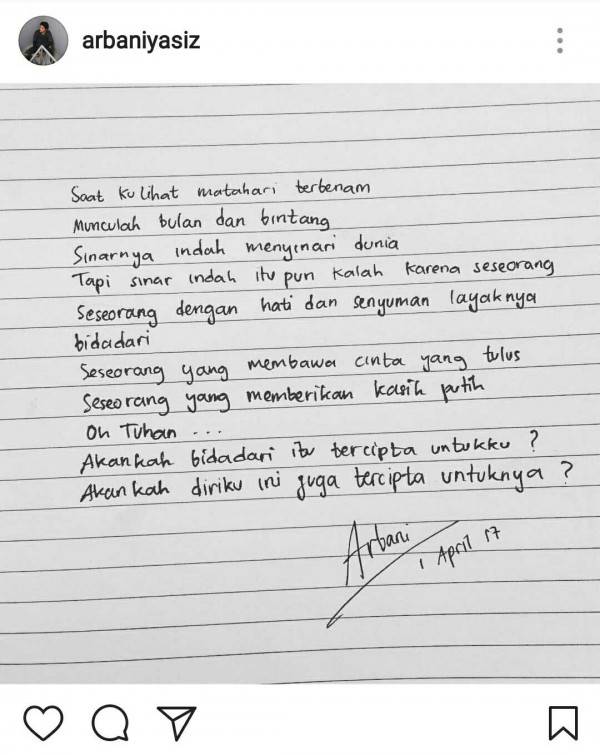 arbaniyasiz
Saat kulihat matahari terbenam
Munculah bulan dan bintang
Sinarnya indah menyinari dunia
Tapi sinar indah itu pun kalah karena seseorang
Seseorang dengan hati dan senyuman layaknya
bidadari
Seseorang yang membawa cinta yang tulus
Seseorang yang memberikan kasih putih
Oh Tuhan ...
Akankah bidadari itu tercipta untukku ?
Akankah diriku ini juga tercipta untuknya ?
Arbani
1 April 17